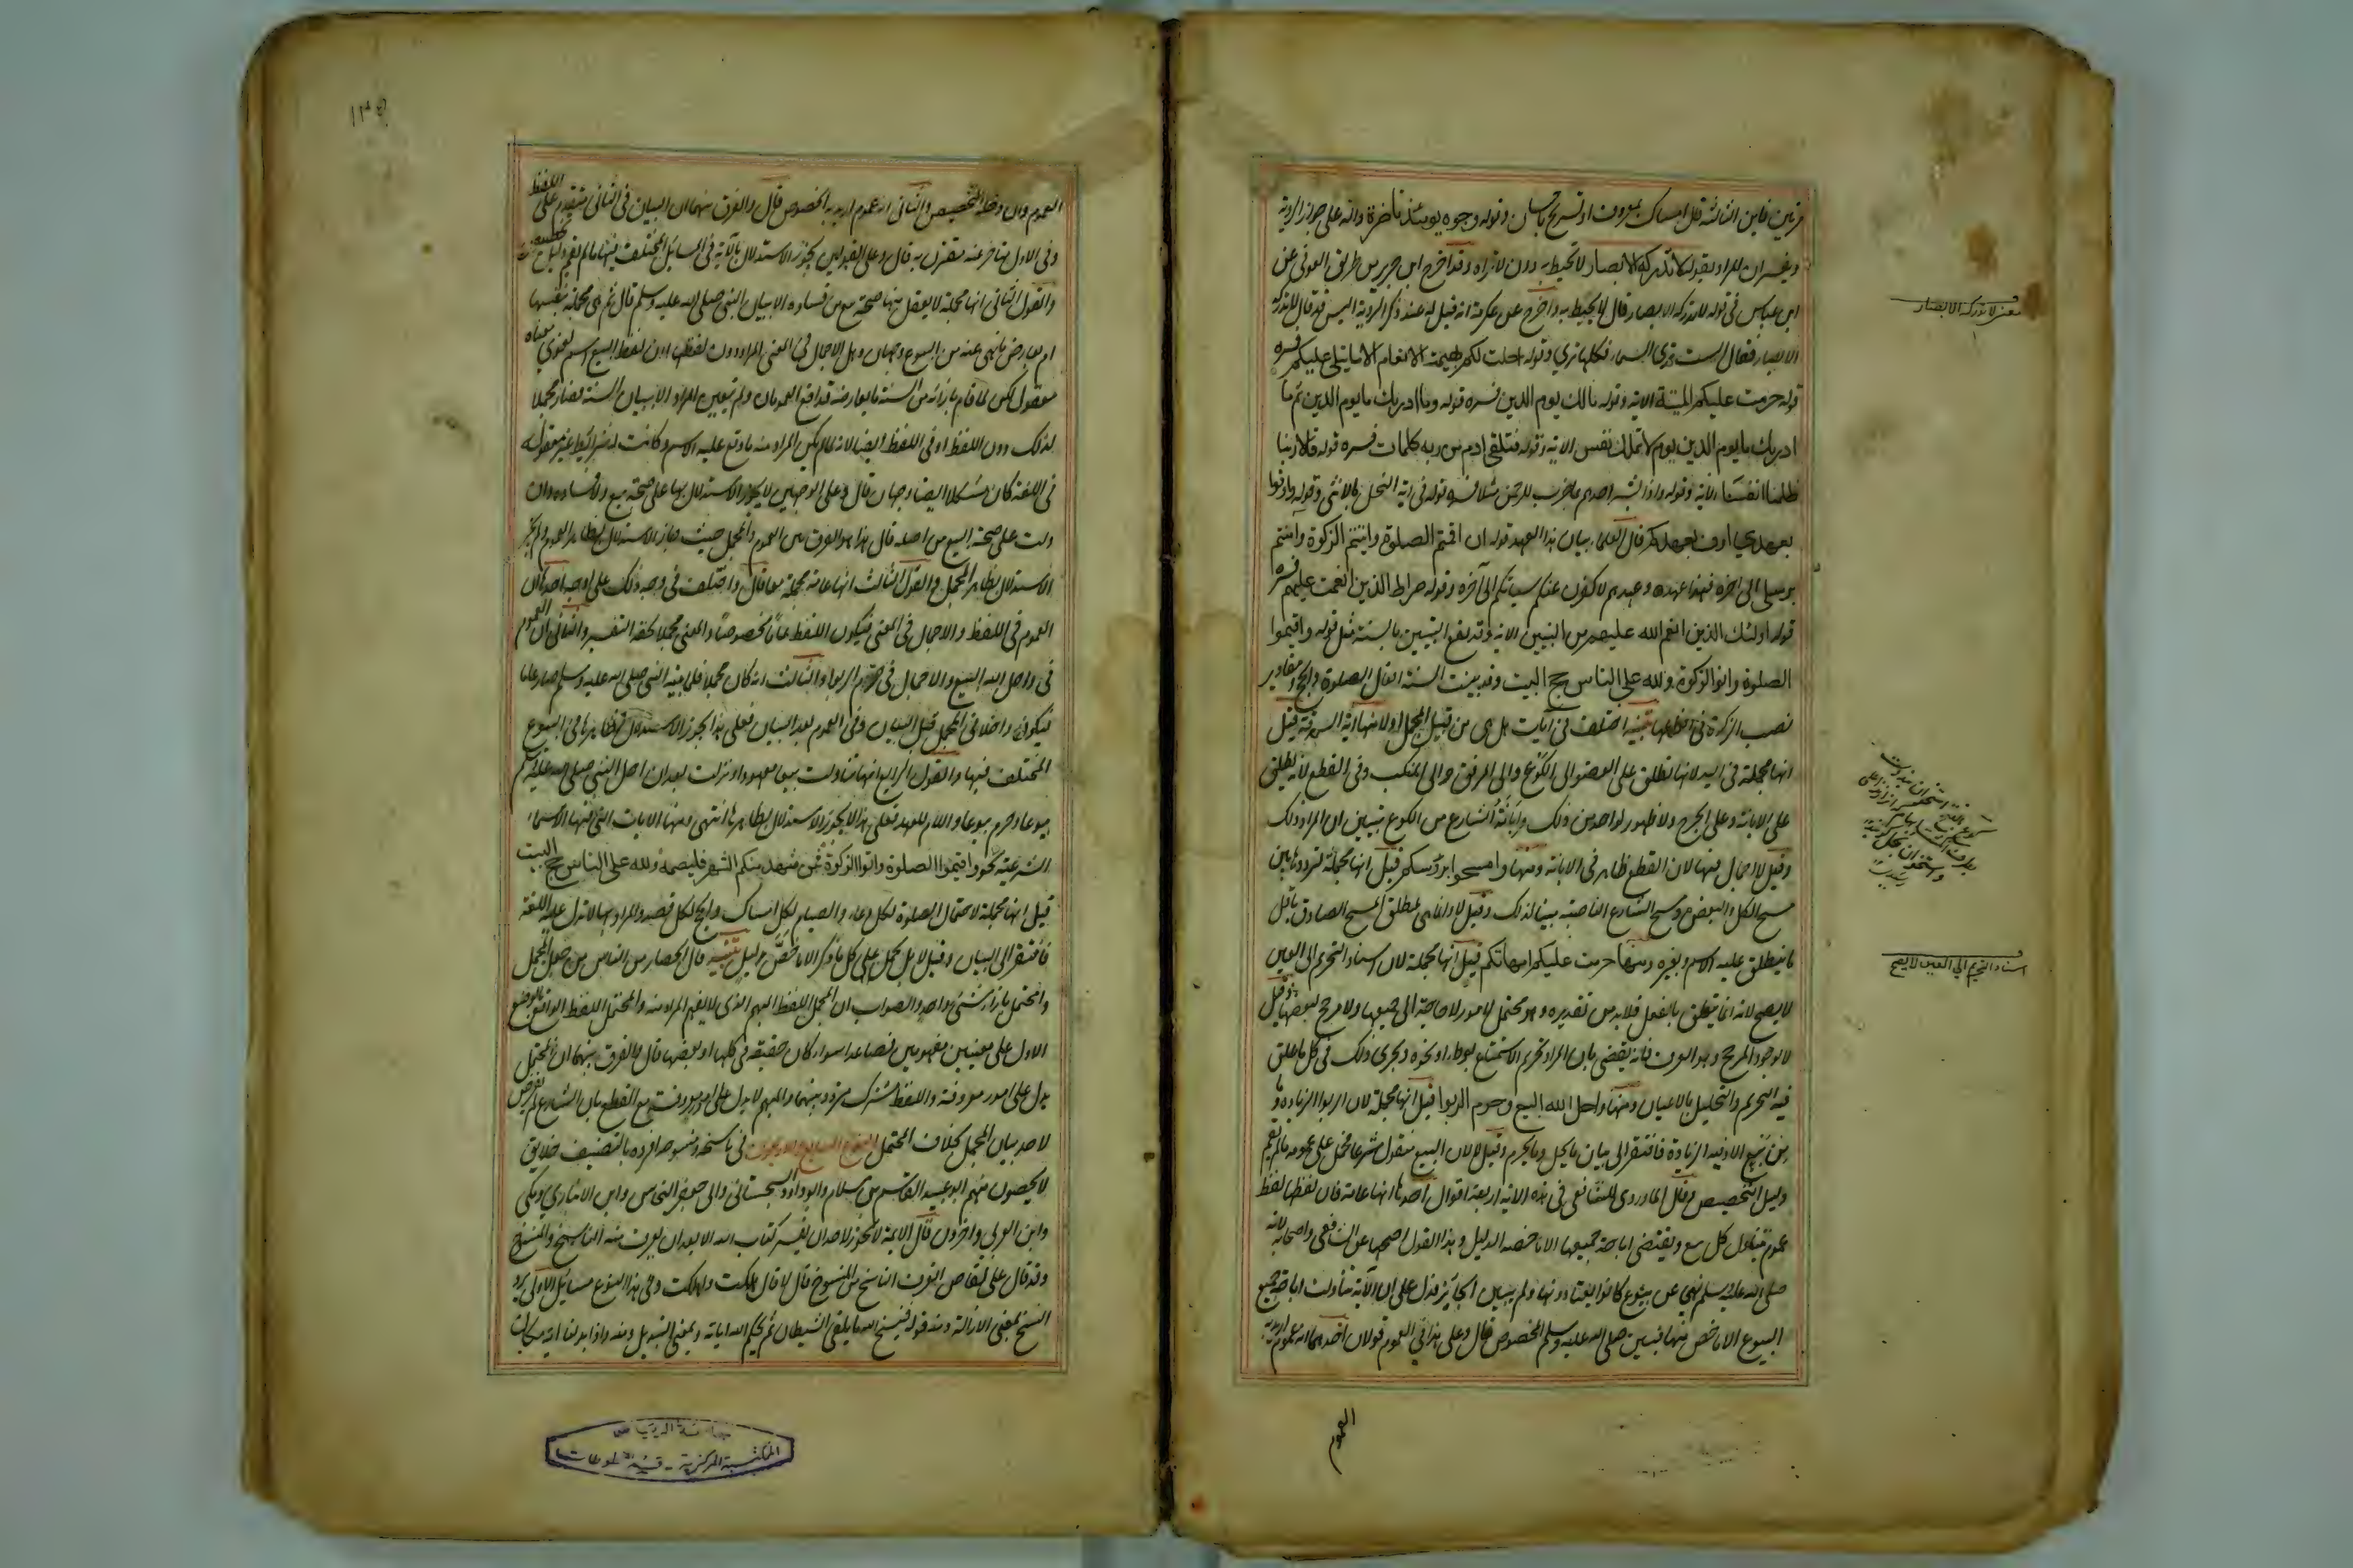 مرتين فاين الثالثة قال امساك بمعروف او تسريح باحسان وقوله وجوه يومئذ ناضرة دالة على جواز الروية
ويفسر ان المراد بقوله لا تدركه الابصار لا تحيط به دون لا تراه وقد اخرج ابن جرير من طريق العوفي عن
ابن عباس في قوله لا تدركه الابصار قال لا تحيط به واخرج عن عكرمة انه قيل له عند ذكر الروية اليس قد قال لا تدركه
الابصار فقال الست ترى السماء فكلها ترى وقوله احلت لكم بهيمة الانعام الا ما يتلى عليكم فسره
قوله حرمت عليكم الميتة الاية وقوله مالك يوم الدين فسره قوله وما ادريك ما يوم الدين ثم ما
ادريك ما يوم الدين يوم لا تملك نفس الاية وقوله فتلقى ادم من ربه كلمات فسره قوله قالا ربنا
ظلمنا انفسنا الاية وقوله واذا بشر احدهم بما ضرب للرحمن مثلا فسره قوله في اية النحل بالانثى وقوله واوفوا
بعهدي اوف بعهدكم قال العلماء بيان هذا العهد قوله لئن اقمتم الصلوة واتيتم الزكوة وامنتم
برسلي الى اخره فهذا عهده وعهدهم لاكفرن عنكم سيئاتكم الى آخره وقوله صراط الذين انعمت عليهم فسره
قوله اولئك الذين انعم الله عليهم من النبيين الاية وقد يقع التبيين بالسنة مثل قوله واقيموا
الصلوة واتوا الزكوة ولله على الناس حج البيت وقد بينت السنة افعال الصلوة والحج ومقادير
نصب الزكوة في انواعها تنبيه اختلف في آيات هل هي من قبيل المجمل اولا منها اية السرقة قيل
انها مجملة في اليد لانها تطلق على العضو الى الكوع والى المرفق والى المنكب وفي القطع لانه يطلق
على الابانة وعلى الجرح ولا ظهور لواحد من ذلك وابانة الشارع من الكوع تبين ان المراد ذلك
وقيل لا اجمال فيها لان القطع ظاهر في الابانة ومنها وامسحوا برؤسكم قيل انها مجملة لترددها بين
مسح الكل والبعض ومسح الشارع الناصية مبينا لذلك وقيل لا وانما هي لمطلق المسح الصادق باقل
ما ينطلق عليه الاسم وبغيره ومنها حرمت عليكم امهاتكم قيل انها مجملة لان اسناد التحريم الى العين
لا يصح لانه انما يتعلق بالفعل فلا بد من تقديره وهو محتمل لامور لا حاجة الى جميعها ولا مرجح لبعضها وقيل
لا لوجود المرجح وهو العرف فانه يقضي بان المراد تحريم الاستمتاع بوطء او نحوه ويجري ذلك في كل ما علق
فيه التحريم والتحليل بالاعيان ومنها واحل الله البيع وحرم الربوا قيل انها مجملة لان الربوا الزيادة وما
من بيع الا وفيه زيادة فافتقر الى بيان ما يحل وما يحرم وقيل لا لان البيع منقول شرعا فحمل على عمومه ما لم يقم
دليل التخصيص وقال الماوردي للشافعي في هذه الاية اربعة اقوال احدها انها عامة فان لفظها لفظ
عموم يتناول كل بيع ويقتضي اباحة جميعها الا ما خصه الدليل وهذا القول اصحها عن الشافعي واصحابه لانه
صلى الله عليه وسلم نهى عن بيوع كانوا يعتادونها ولم يبين الجايز فدل على ان الآية تناولت اباحة جميع
البيوع الا ما خص منها فبين صلى الله عليه وسلم المخصوص قال وعلى هذا في العموم قولان احدهما انه عموم اريد به
العموم
معنى لا تدركه الابصار
اسناد التحريم الى العين لا يصح
العموم وان دخله التخصيص والثاني انه عموم اريد به الخصوص قال والفرق بينهما ان البيان في الثاني متقدم على اللفظ
وفي الاول متاخر عنه مقترن به قال وعلى القولين يجوز الاستدلال بالآية في المسائل المختلف فيها ما لم يقم دليل تخصيص
والقول الثاني انها مجملة لا يعقل منها صحة بيع من فساده الا ببيان النبي صلى الله عليه وسلم قال ثم هي مجملة بنفسها
ام بعارض ما نهي عنه من البيوع وجهان وهل الاجمال في المعنى المراد دون لفظها لان لفظ البيع اسم لغوي معناه
معقول لكن لما قام بازائه من السنة ما يعارضه تدافع العمومان ولم يتعين المراد الا ببيان السنة فصار مجملا
لذلك دون اللفظ او في اللفظ ايضا لانه لما لم يكن المراد منه ما وقع عليه الاسم وكانت له شرائط غير معقولة
في اللغة كان مشكلا ايضا وجهان قال وعلى الوجهين لا يجوز الاستدلال بها على صحة بيع ولا فساده وان
دلت على صحة البيع من اصله قال هذا هو الفرق بين العموم والمجمل حيث جاز الاستدلال بظاهر العموم ولم يجز
الاستدلال بظاهر المجمل والقول الثالث انها عامة مجملة معا قال واختلف في وجه ذلك على اوجه احدها ان
العموم في اللفظ والاجمال في المعنى فيكون اللفظ عاما مخصوصا والمعنى مجملا لحقه التفسير والثاني ان العموم
في واحل الله البيع والاجمال في وحرم الربوا والثالث انه كان مجملا فلما بينه النبي صلى الله عليه وسلم صار عاما
فيكون داخلا في المجمل قبل البيان وفي العموم بعد البيان فعلى هذا يجوز الاستدلال بظاهرها في البيوع
المختلف فيها والقول الرابع انها تناولت بيعا معهودا ونزلت بعد ان احل النبي صلى الله عليه وسلم
بيوعا وحرم بيوعا واللام للعهد فعلى هذا لا يجوز الاستدلال بظاهرها انتهى ومنها الايات التي فيها الاسماء
الشرعية نحو واقيموا الصلوة واتوا الزكوة فمن شهد منكم الشهر فليصمه ولله على الناس حج البيت
قيل انها مجملة لاحتمال الصلوة لكل دعاء والصيام لكل امساك والحج لكل قصد والمراد بها لا تدل عليه اللغة
فافتقر الى البيان وقيل لا بل يحمل على كل ما ذكر الا ما خص بدليل تنبيه قال ابن الحصار من الناس من جعل المجمل
والمحتمل بازاء شيء واحد والصواب ان المجمل اللفظ المبهم الذي لا يفهم المراد منه والمحتمل اللفظ الواقع بالوضع
الاول على معنيين مفهومين فصاعدا سواء كان حقيقة في كلها او بعضها قال والفرق بينهما ان المحتمل
يدل على امور معروفة واللفظ مشترك متردد بينهما والمبهم لا يدل على امر معروف مع القطع بان الشارع لم يفوض
لاحد بيان المجمل بخلاف المحتمل النوع السابع والاربعون في ناسخه ومنسوخه افرده بالتصنيف خلائق
لا يحصون منهم ابو عبيد القاسم بن سلام وابو داود السجستاني وابو جعفر النحاس وابن الانباري ومكي
وابن العربي واخرون قال الايمة لا يجوز لاحد ان يفسر كتاب الله الا بعد ان يعرف منه الناسخ والمنسوخ
وقد قال علي لقاص اتعرف الناسخ من المنسوخ قال لا قال هلكت واهلكت وفي هذا النوع مسائل الاولى يرد
النسخ بمعنى الازالة ومنه قوله فينسخ الله ما يلقي الشيطان ثم يحكم الله اياته وبمعنى التبديل ومنه واذا بدلنا اية مكان
جامعة الرياض
المكتبة المركزية - قسم المخطوطات